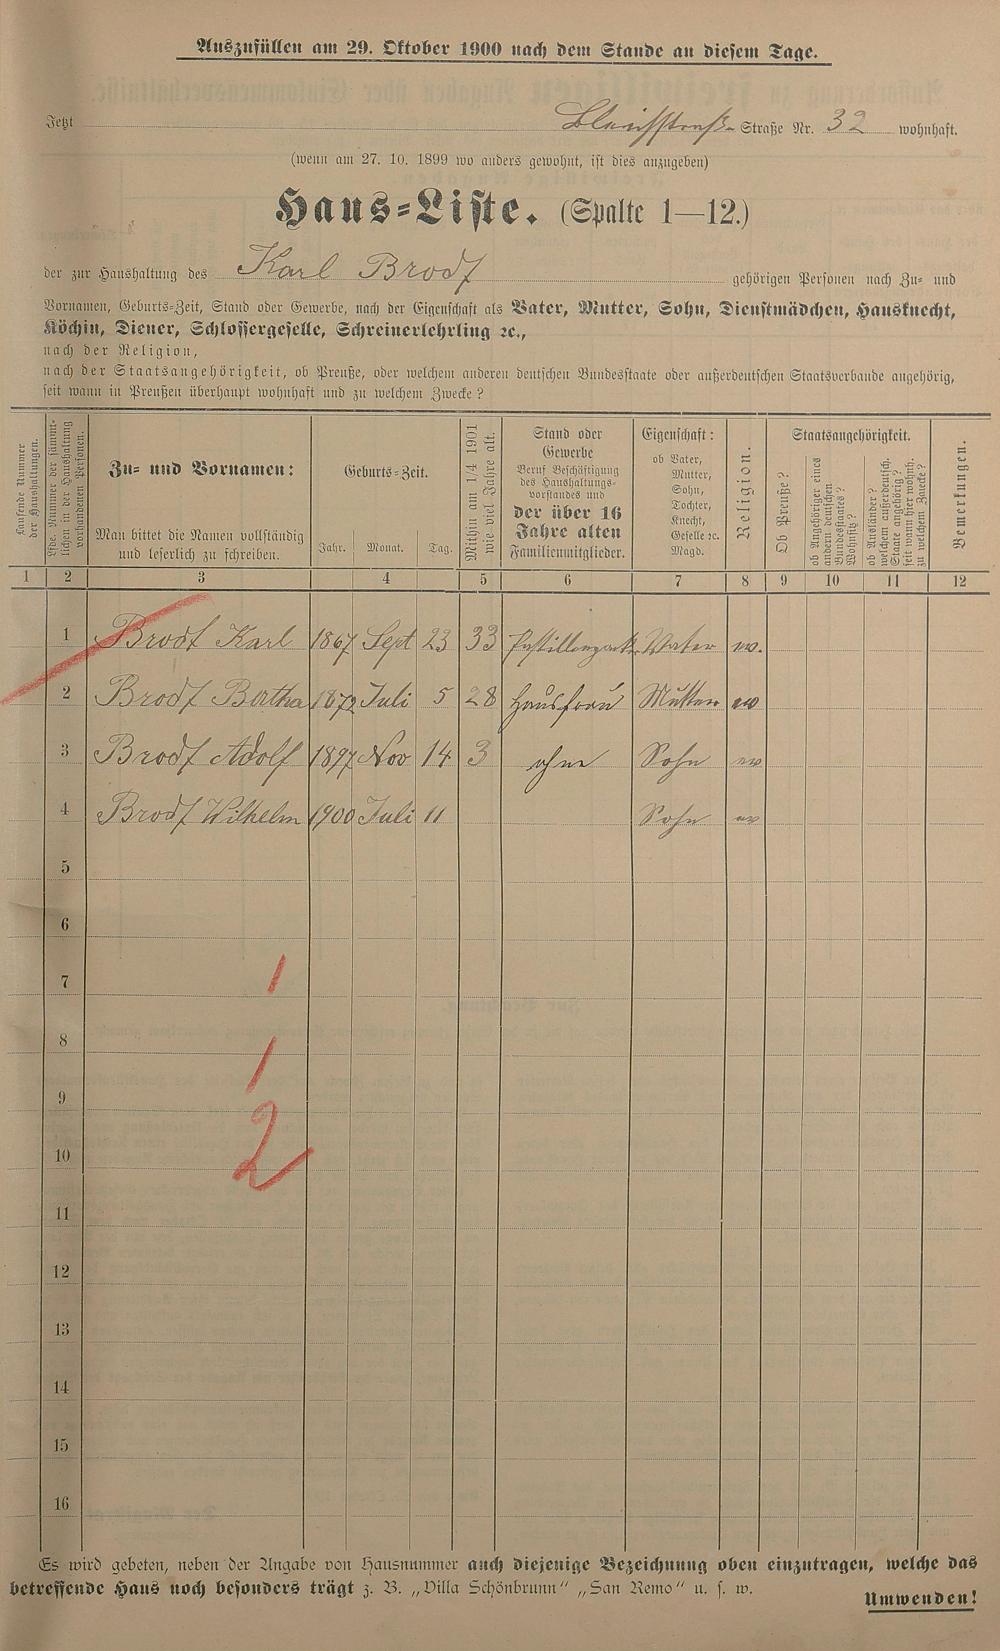 Auszufüllen am 29. Oktober 1900 nach dem Stande an diesem Tage.
Jetzt Bleichstraße Straße Nr. 32 wohnhaft.
(wenn am 27. 10. 1899 wo anders gewohnt, ist dies anzugeben)
Haus-Liste. (Spalte 1—12.)
der zur Haushaltung des Karl Brodt gehörigen Personen nach Zu- und
Vornamen, Geburts-Zeit, Stand oder Gewerbe, nach der Eigenschaft als Vater, Mutter, Sohn, Dienstmädchen, Hausknecht,
Köchin, Diener, Schlossergeselle, Schreinerlehrling ꝛc.,
nach der Religion,
nach der Staatsangehörigkeit, ob Preuße, oder welchem anderen deutschen Bundesstaate oder außerdeutschen Staatsverbande angehörig,
seit wann in Preußen überhaupt wohnhaft und zu welchem Zwecke?
Laufende Nummer
der Haushaltungen.
Lfde. Nummer der sämmt-
lichen in der Haushaltung
vorhandenen Personen.
Zu- und Vornamen:
Man bittet die Namen vollständig
und leserlich zu schreiben.
Geburts-Zeit.
Jahr. Monat. Tag.
Mithin am 1/4 1901
wie viel Jahre alt.
Stand oder
Gewerbe
Beruf Beschäftigung
des Haushaltungs-
vorstandes und
der über 16
Jahre alten
Familienmitglieder.
Eigenschaft:
ob Vater,
Mutter,
Sohn,
Tochter,
Knecht,
Geselle ꝛc.
Magd.
Religion.
Staatsangehörigkeit.
Ob Preuße?
ob Angehöriger eines
andern deutschen
Bundesstaates?
Wohnsitz?
ob Ausländer?
welchem außerdeutsch.
Staate angehörig?
seit wann hier wohnh.
zu welchem Zwecke?
Bemerkungen.
1 2 3 4 5 6 7 8 9 10 11 12
1 Brodt Karl 1867 Sept 23 33 Vater ev.
2 Brodt Bertha 1872 Juli 5 28 Hausfrau Mutter ev
3 Brodt Adolf 1897 Nov 14 3 ohne Sohn ev
4 Brodt Wilhelm 1900 Juli 11 Sohn ev
5
6
7
1
8
1
9
2
10
11
12
13
14
15
16
Es wird gebeten, neben der Angabe von Hausnummer auch diejenige Bezeichnung oben einzutragen, welche das
betreffende Haus noch besonders trägt z. B. „Villa Schönbrunn" „San Remo" u. s. w.
Umwenden!